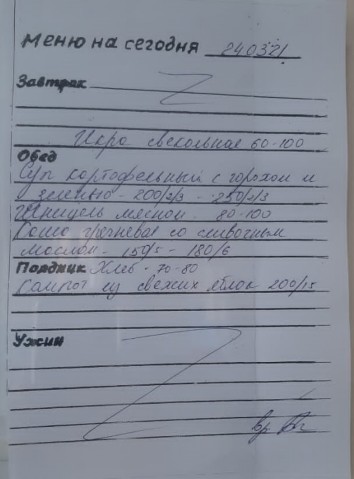 Меню на сегодня 240321
Завтрак
Икра свекольная 60-100
Обед
Суп картофельный с горохом и
зеленью - 200/2/3 - 250/2/3
Шницель мясной 80-100
Каша гречневая со сливочным
маслом - 150/5 - 180/6
Полдник Хлеб - 70-80
Компот из свежих яблок 200/15
Ужин